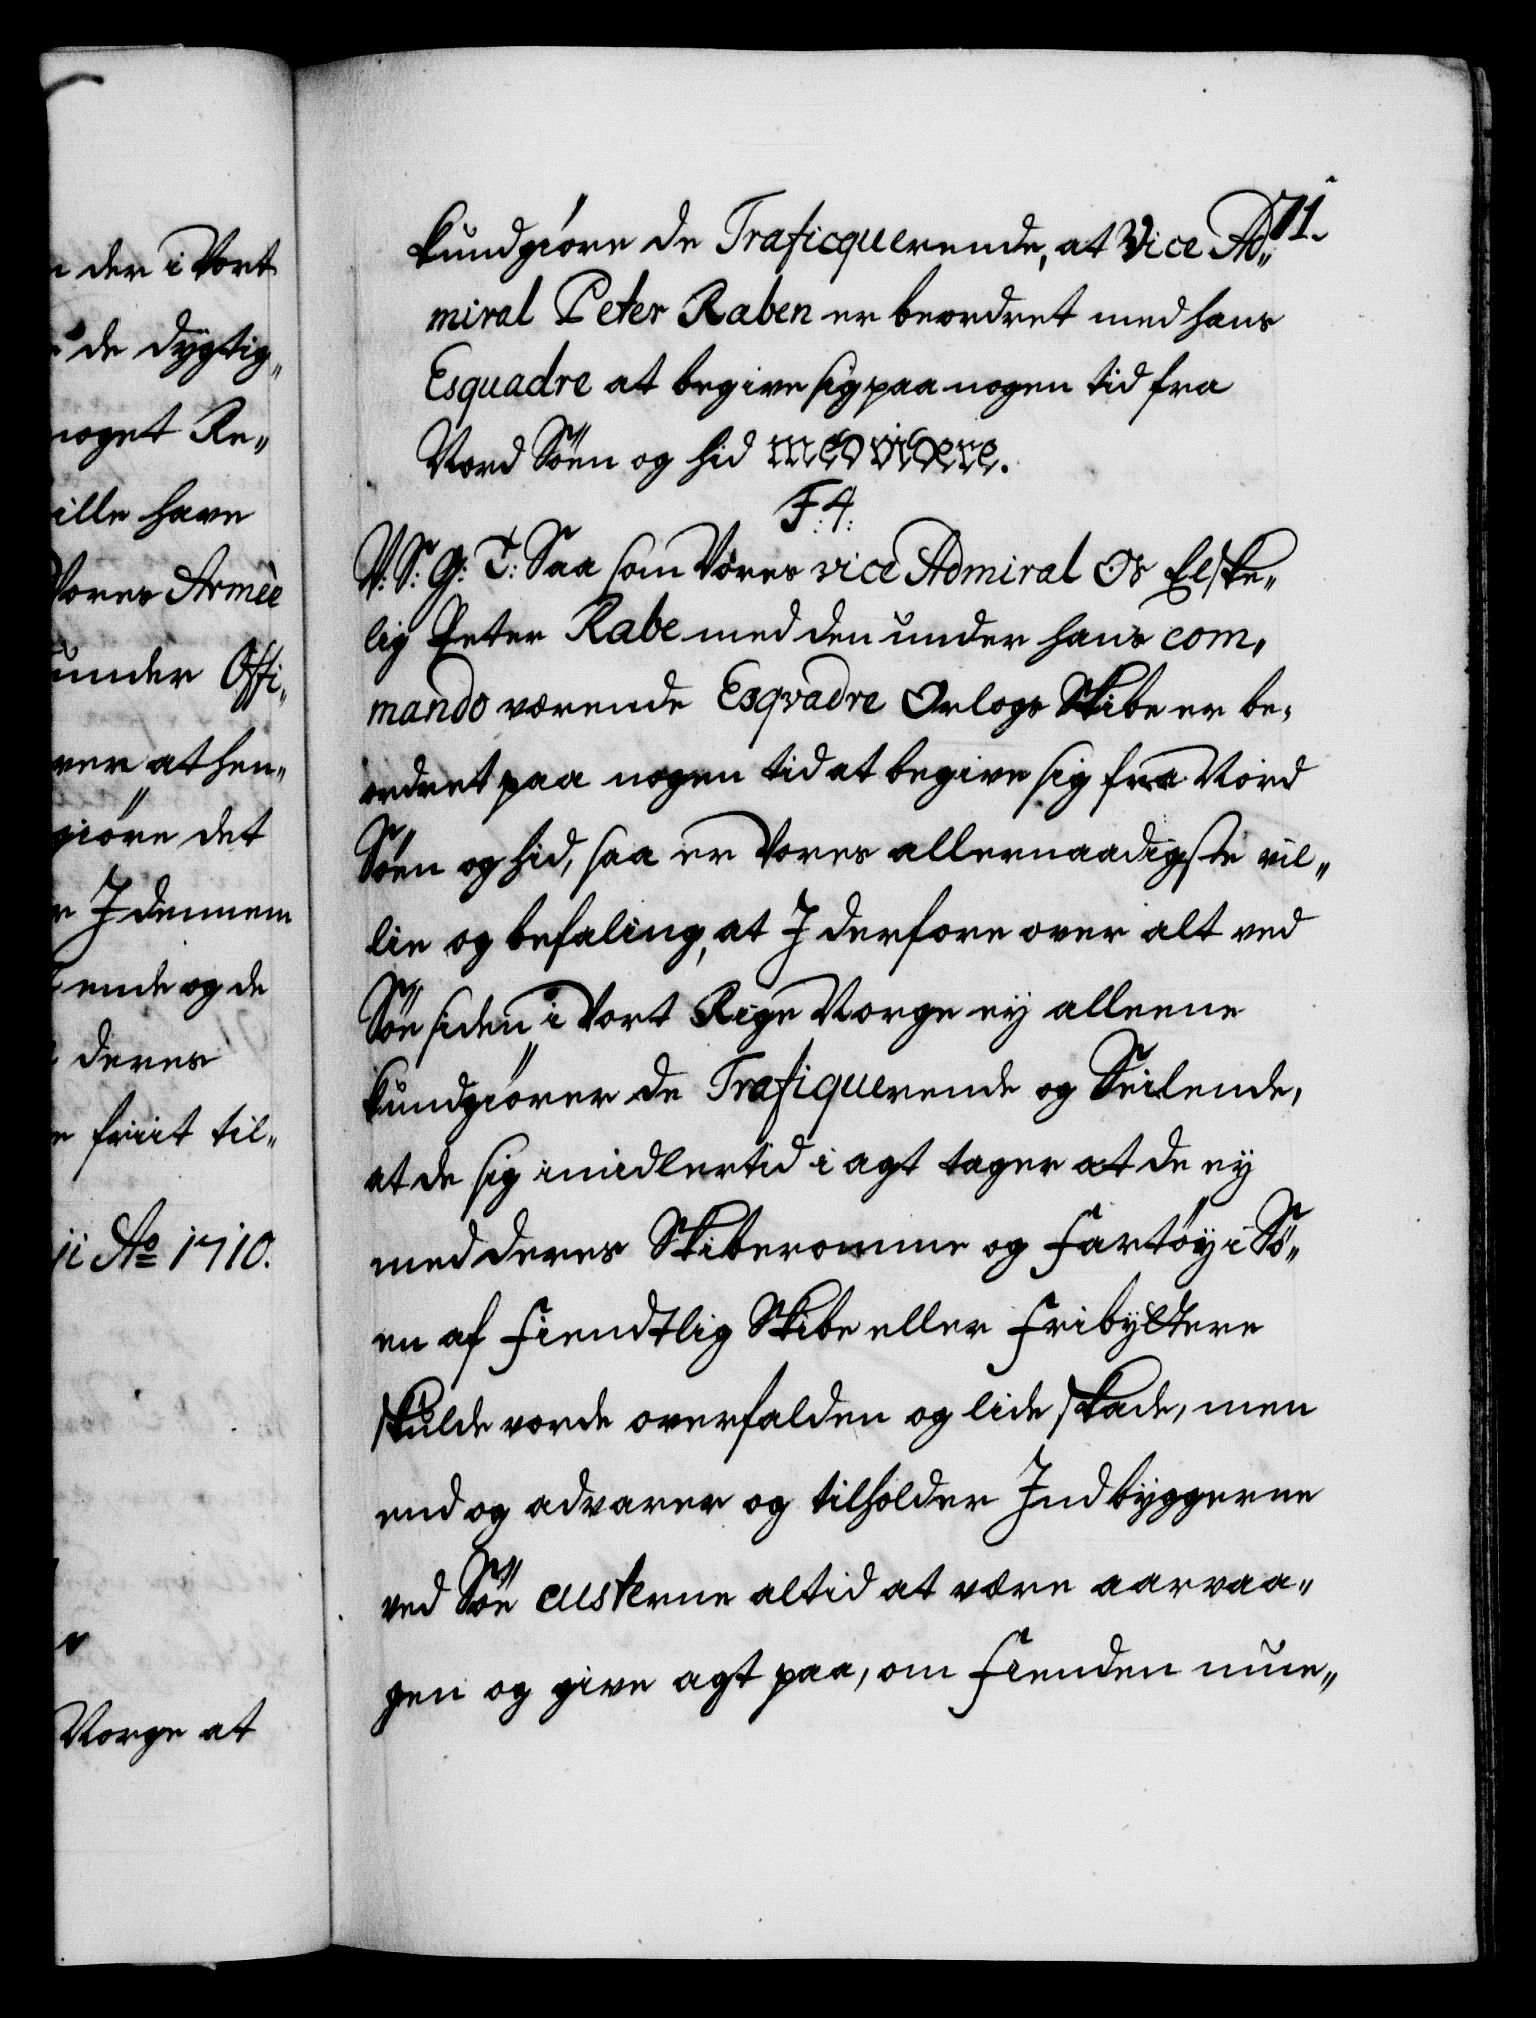 n der i Vort
de dygtig„
noget Re„
ille have
Vores Armèe
under Offi„
ver at hen„
giöre det
r I dennem
ende og de
deres
e friit til„
ji Ao 1710.
Norge at
71.
kundgiöre de Traficquerende, at Vice Ad„
miral Peter Raben er beordret med hans
Esquadre at begive sig paa nogen tid fra
Nord Söen og hid med videre.
F. 4.
V. S. G. T. Saa som Vores vice Admiral Os Elske„
lig Peter Rabe med den under hans com„
mando værende Esqvadre Orlogs Skibe er be„
ordret paa nogen tid at begive sig fra Nord
Söen og hid, saa er Vores allernaadigste vil„
lie og befaling, at I derfore over alt ved
Söe siden i Vort Rige Norge ey alleene
kundgiörer de Trafiquerende og Seilende,
at de sig imidlertid i agt tager at de ey
med deres Skiberomme og Fartöy i Sö„
en af Fiendtlig Skibe eller Fribyttere
skulde vorde overfalden og lide skade, men
end og advarer og tilholder Indbyggerne
ved Söe custerne altid at være aarvaa„
gen og give agt paa, om Fienden nue„